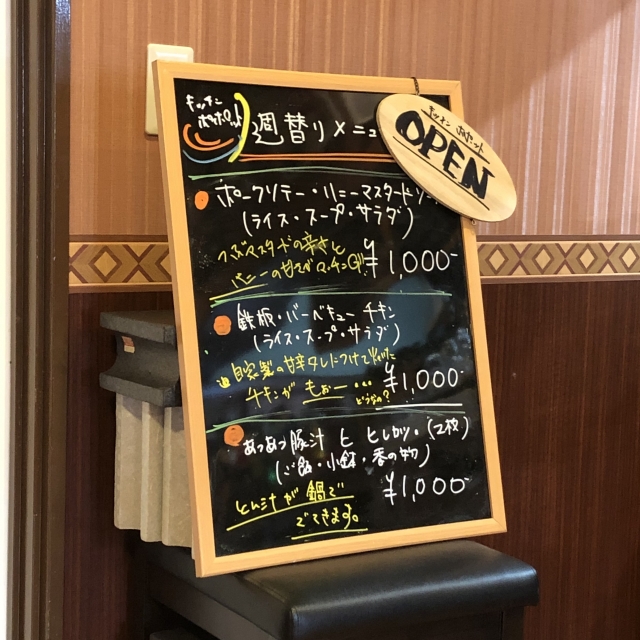 キッチン
ポポット
週替りメニュ
キッチン ポポット
OPEN
ポークソテー・ハニーマスタードソ
(ライス・スープ・サラダ)
つぶマスタードの辛さと
ハニーの甘さがマッチング!
¥1,000-
鉄板・バーベキューチキン
(ライス・スープ・サラダ)
自家製の甘辛タレにつけて
チキンが もぉー…
どうなの?
¥1,000-
あつあつ豚汁 と ヒレカツ・(2枚)
(ご飯・小鉢・香の物)
とん汁が鍋で
でてきます。
¥1,000-